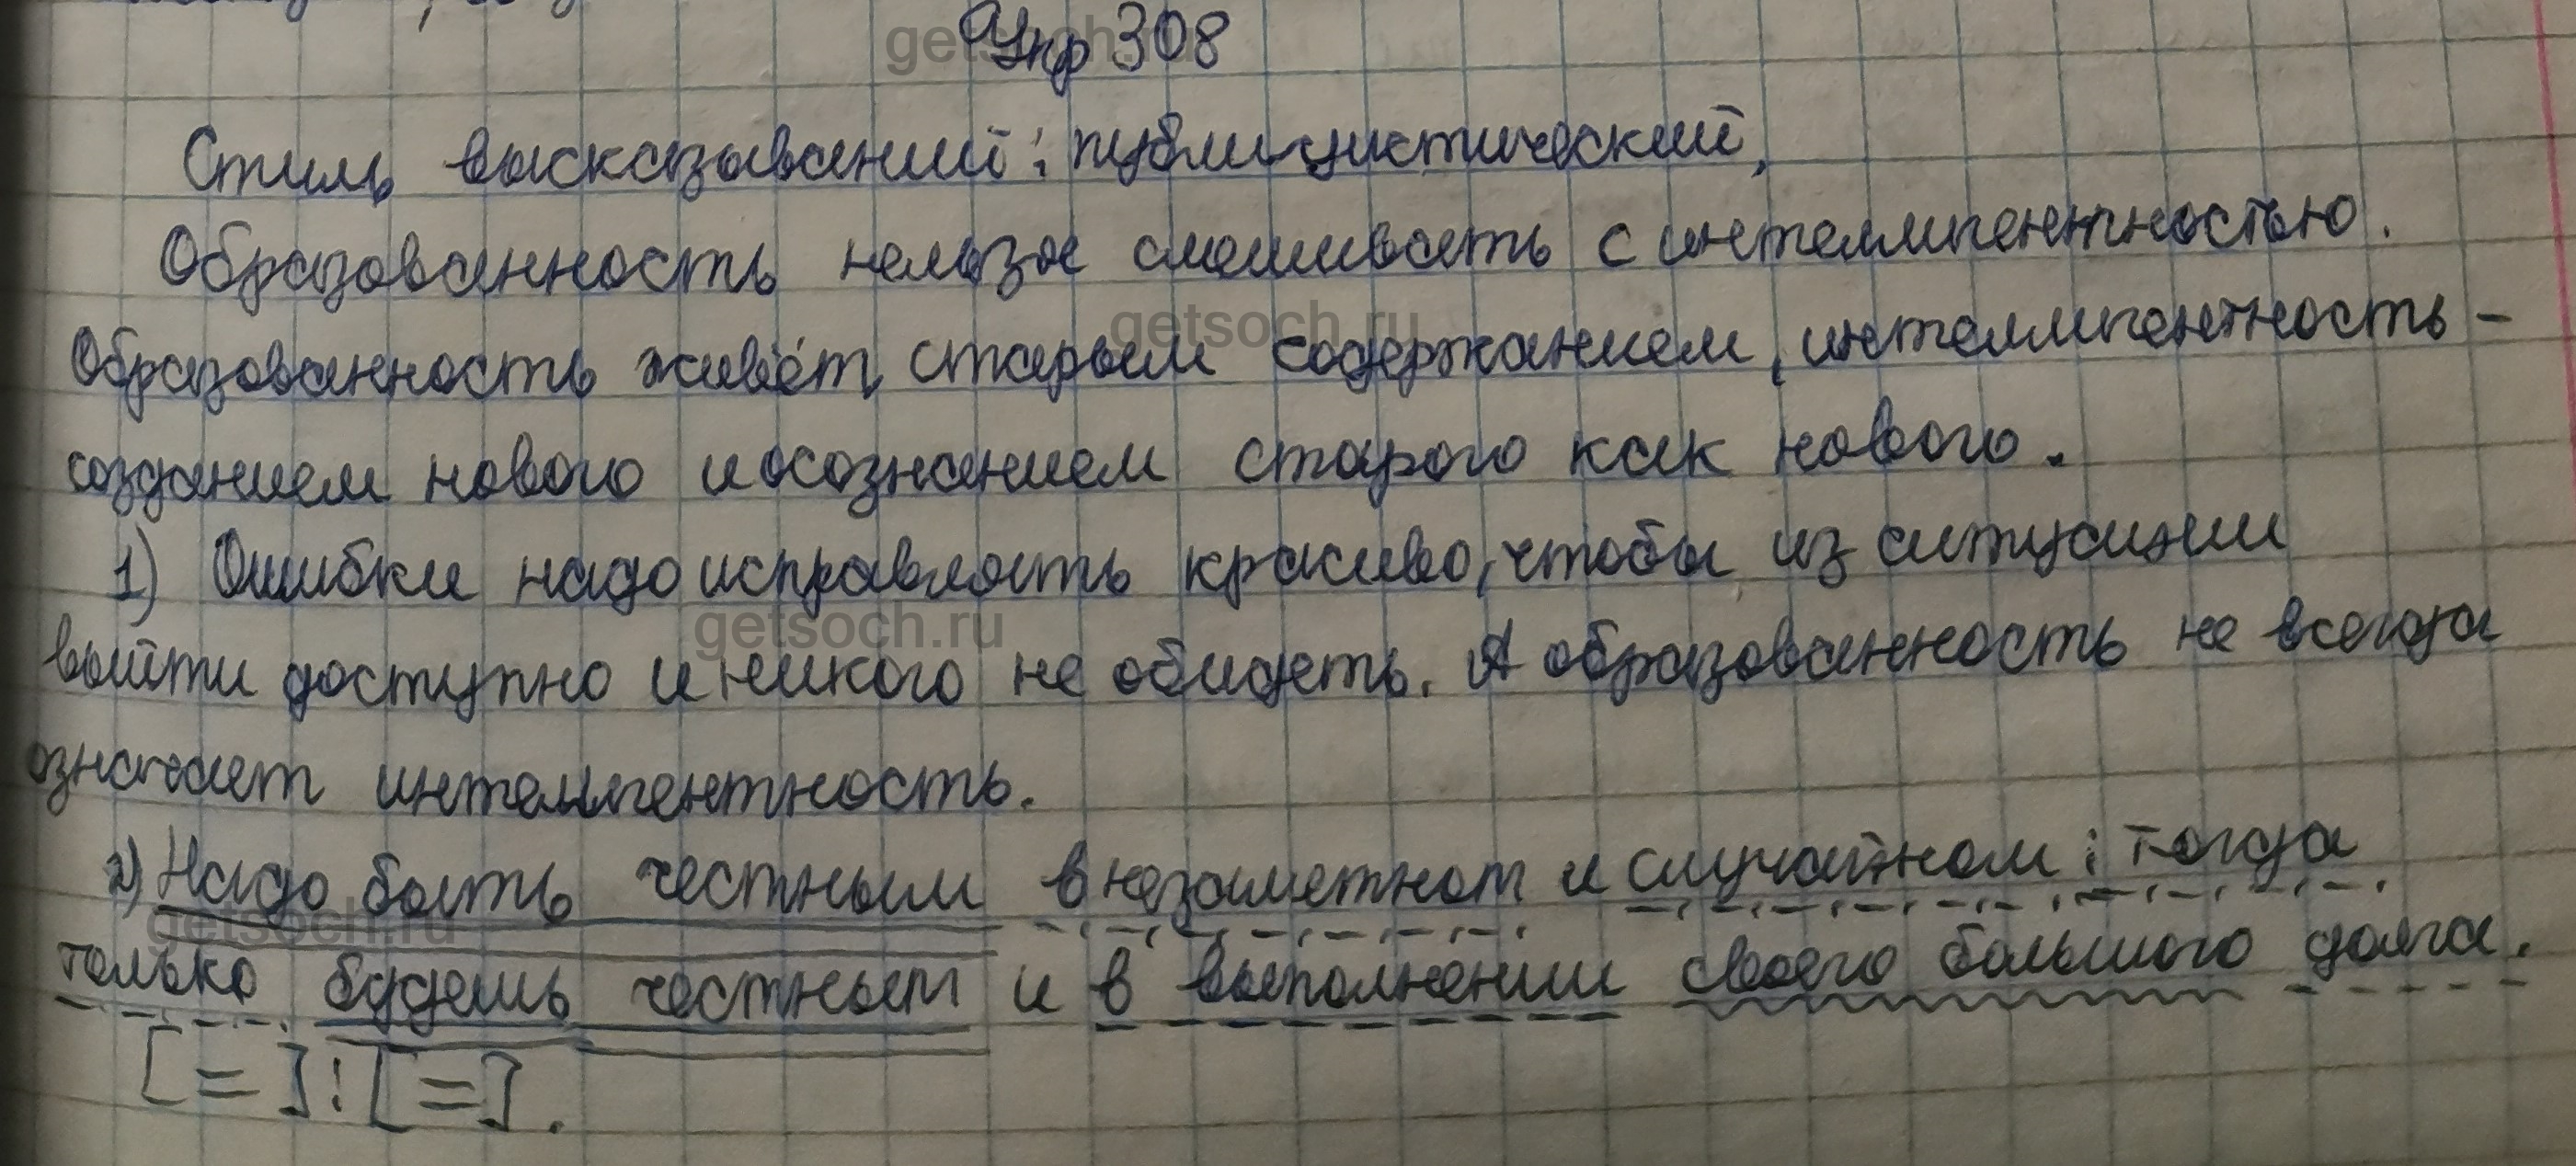 Упр 308
Стиль высказываний: публицистический,
Образованность нельзя смешивать с интеллигентностью.
Образованность живёт старым содержанием, интеллигентность –
созданием нового и осознанием старого как нового.
1) Ошибки надо исправлять красиво, чтобы из ситуации
выйти доступно и никого не обидеть. А образованность не всегда
означает интеллигентность.
2) Надо быть честным в незаметном и случайном: тогда
только будешь честным и в выполнении своего большого долга.
[=]:[=].
getsoch.ru
getsoch.ru
getsoch.ru
getsoch.ru